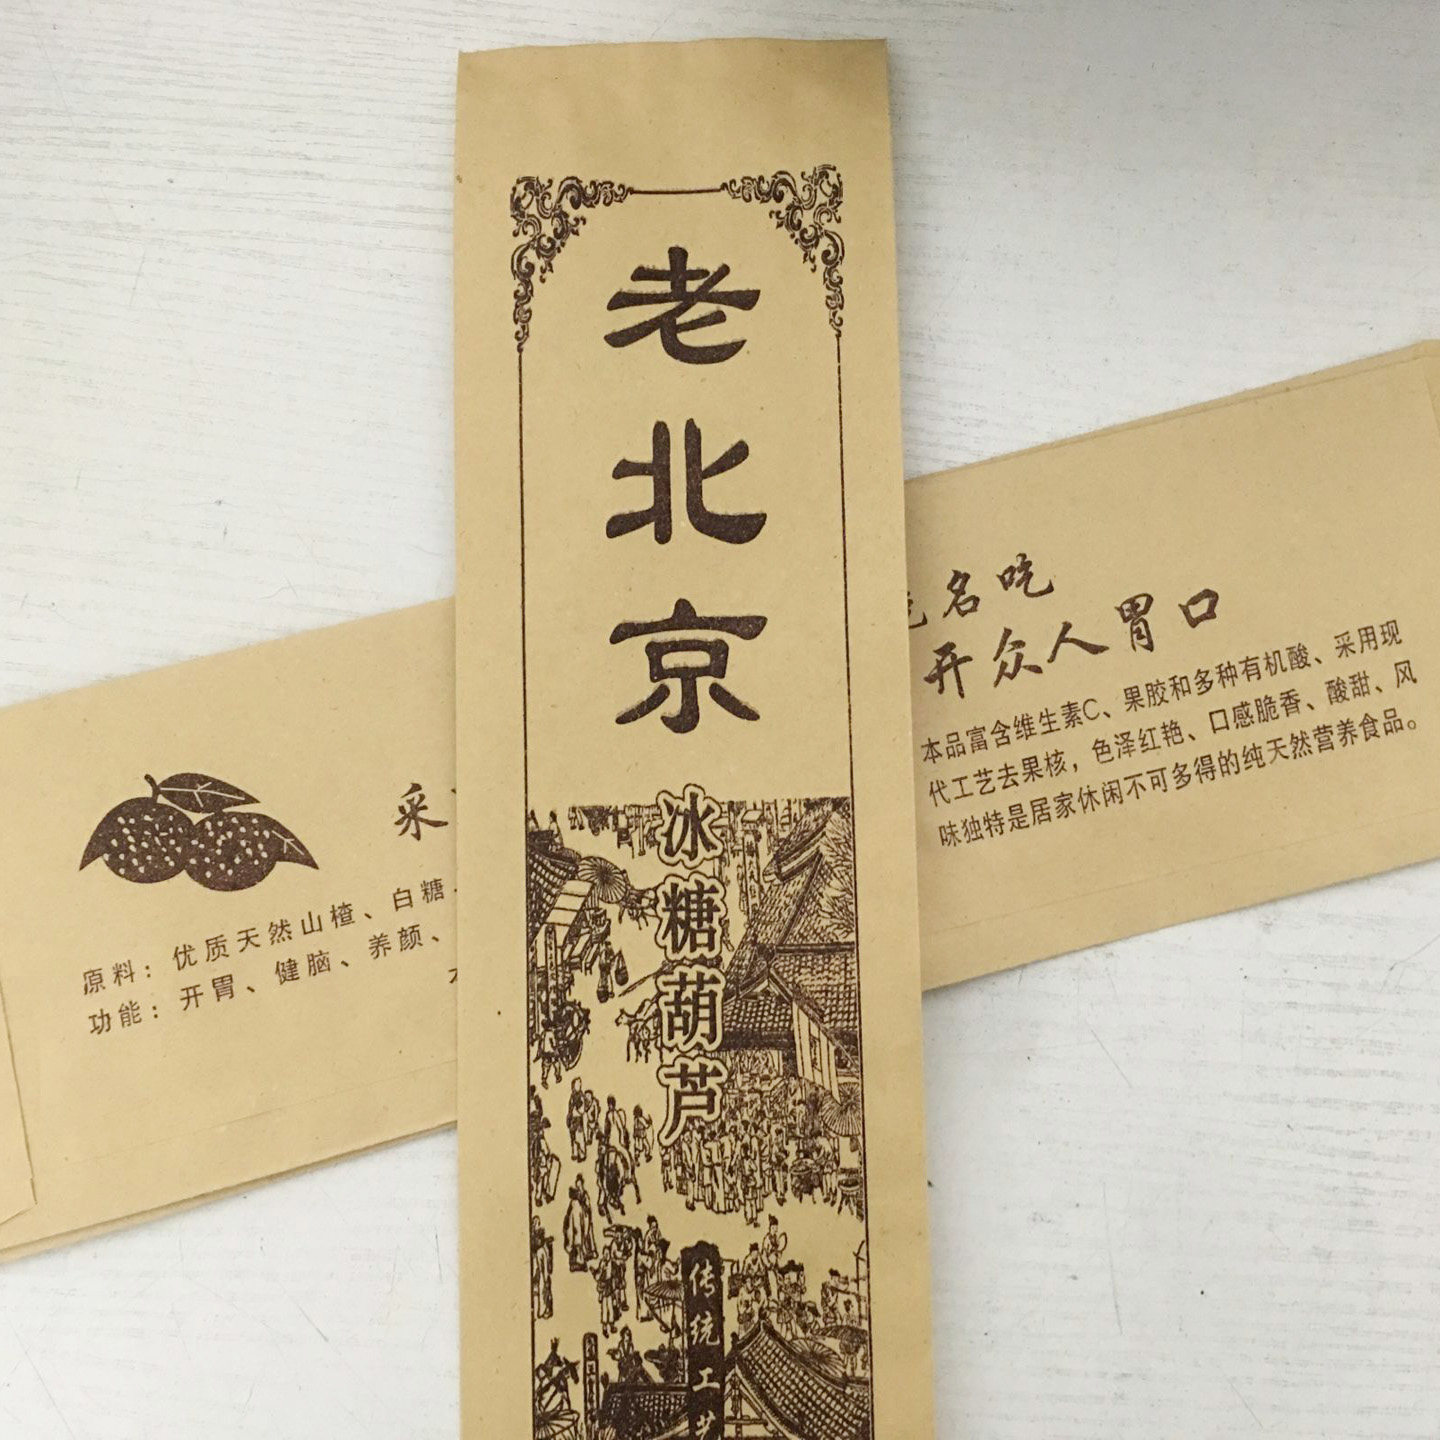 老北京
冰糖葫芦
传统工艺
采
原料：优质天然山楂、白糖
功能：开胃、健脑、养颜、
名吃
开众人胃口
本品富含维生素C、果胶和多种有机酸、采用现
代工艺去果核，色泽红艳、口感脆香、酸甜、风
味独特是居家休闲不可多得的纯天然营养食品。